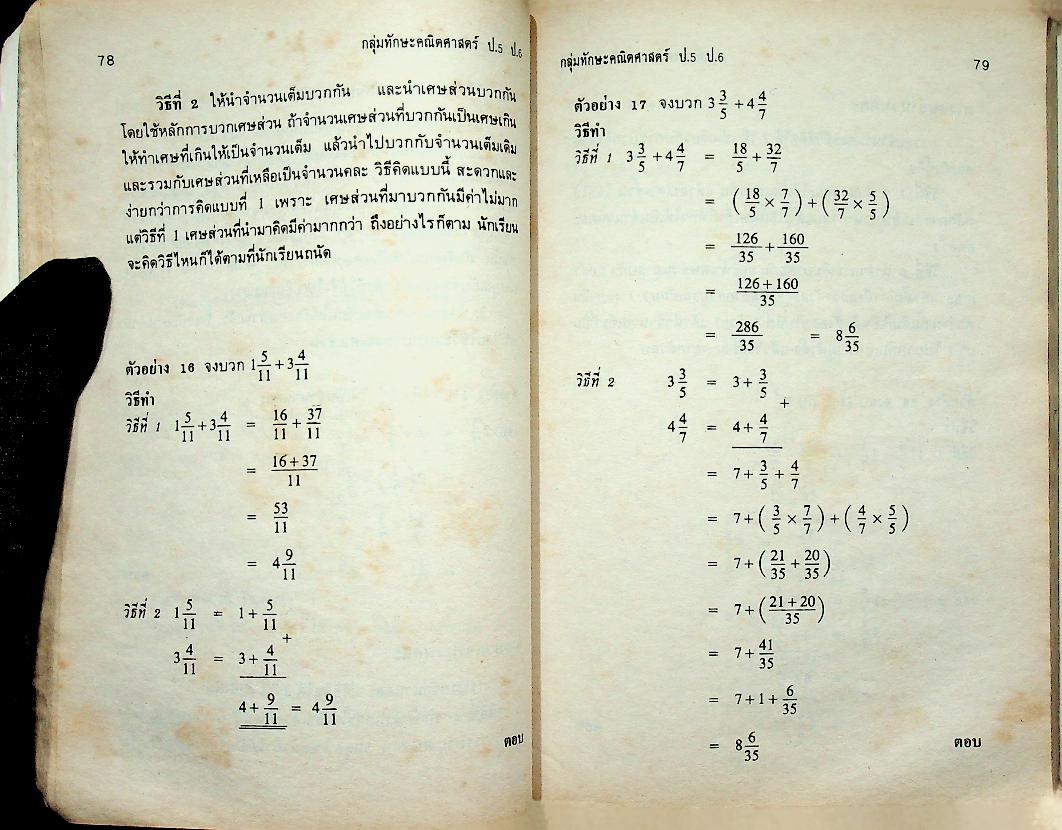 78
กลุ่มทักษะคณิตศาสตร์ ป.5 ป.6
วิธีที่ 2 ให้นำจำนวนเต็มบวกกัน และนำเศษส่วนบวกกัน
โดยใช้หลักการบวกเศษส่วน ถ้าจำนวนเศษส่วนที่บวกกันเป็นเศษเกิน
ให้ทำเศษที่เกินให้เป็นจำนวนเต็ม แล้วนำไปบวกกับจำนวนเต็มเดิม
และรวมกับเศษส่วนที่เหลือเป็นจำนวนคละ วิธีคิดแบบนี้ สะดวกและ
ง่ายกว่าการคิดแบบที่ 1 เพราะ เศษส่วนที่มาบวกกันมีค่าไม่มาก
แต่วิธีที่ 1 เศษส่วนที่นำมาคิดมีค่ามากกว่า ถึงอย่างไรก็ตาม นักเรียน
จะคิดวิธีไหนก็ได้ตามที่นักเรียนถนัด
ตัวอย่าง 16 จงบวก 1 5/11 + 3 4/11
วิธีทำ
วิธีที่ 1 1 5/11 + 3 4/11 = 16/11 + 37/11
= (16+37)/11
= 53/11
= 4 9/11
วิธีที่ 2 1 5/11 = 1 + 5/11
+
3 4/11 = 3 + 4/11
4 + 9/11 = 4 9/11
ตอบ
กลุ่มทักษะคณิตศาสตร์ ป.5 ป.6
79
ตัวอย่าง 17 จงบวก 3 3/5 + 4 4/7
วิธีทำ
วิธีที่ 1 3 3/5 + 4 4/7 = 18/5 + 32/7
= (18/5 × 7/7) + (32/7 × 5/5)
= 126/35 + 160/35
= (126+160)/35
= 286/35 = 8 6/35
วิธีที่ 2 3 3/5 = 3 + 3/5
+
4 4/7 = 4 + 4/7
= 7 + 3/5 + 4/7
= 7 + (3/5 × 7/7) + (4/7 × 5/5)
= 7 + (21/35 + 20/35)
= 7 + ((21+20)/35)
= 7 + 41/35
= 7 + 1 + 6/35
= 8 6/35 ตอบ